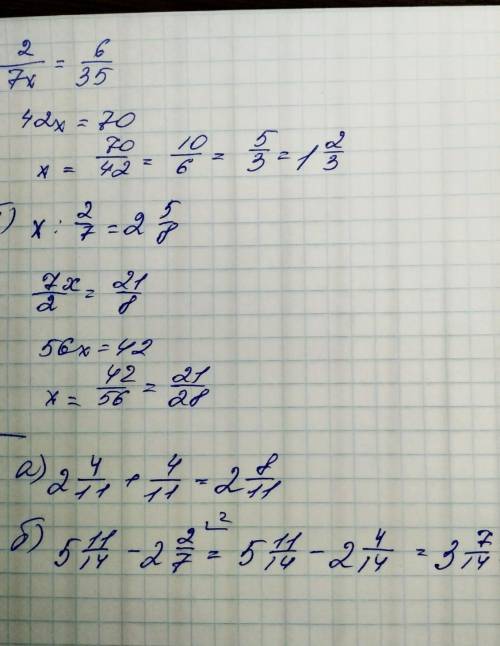 2/7x = 6/35
42x = 70
x = 70/42 = 10/6 = 5/3 = 1 2/3
) x : 2/7 = 2 5/8
7x/2 = 21/8
56x = 42
x = 42/56 = 21/28
а) 2 4/11 + 4/11 = 2 8/11
б) 5 11/14 - 2 2/7 = 5 11/14 - 2 4/14 = 3 7/14